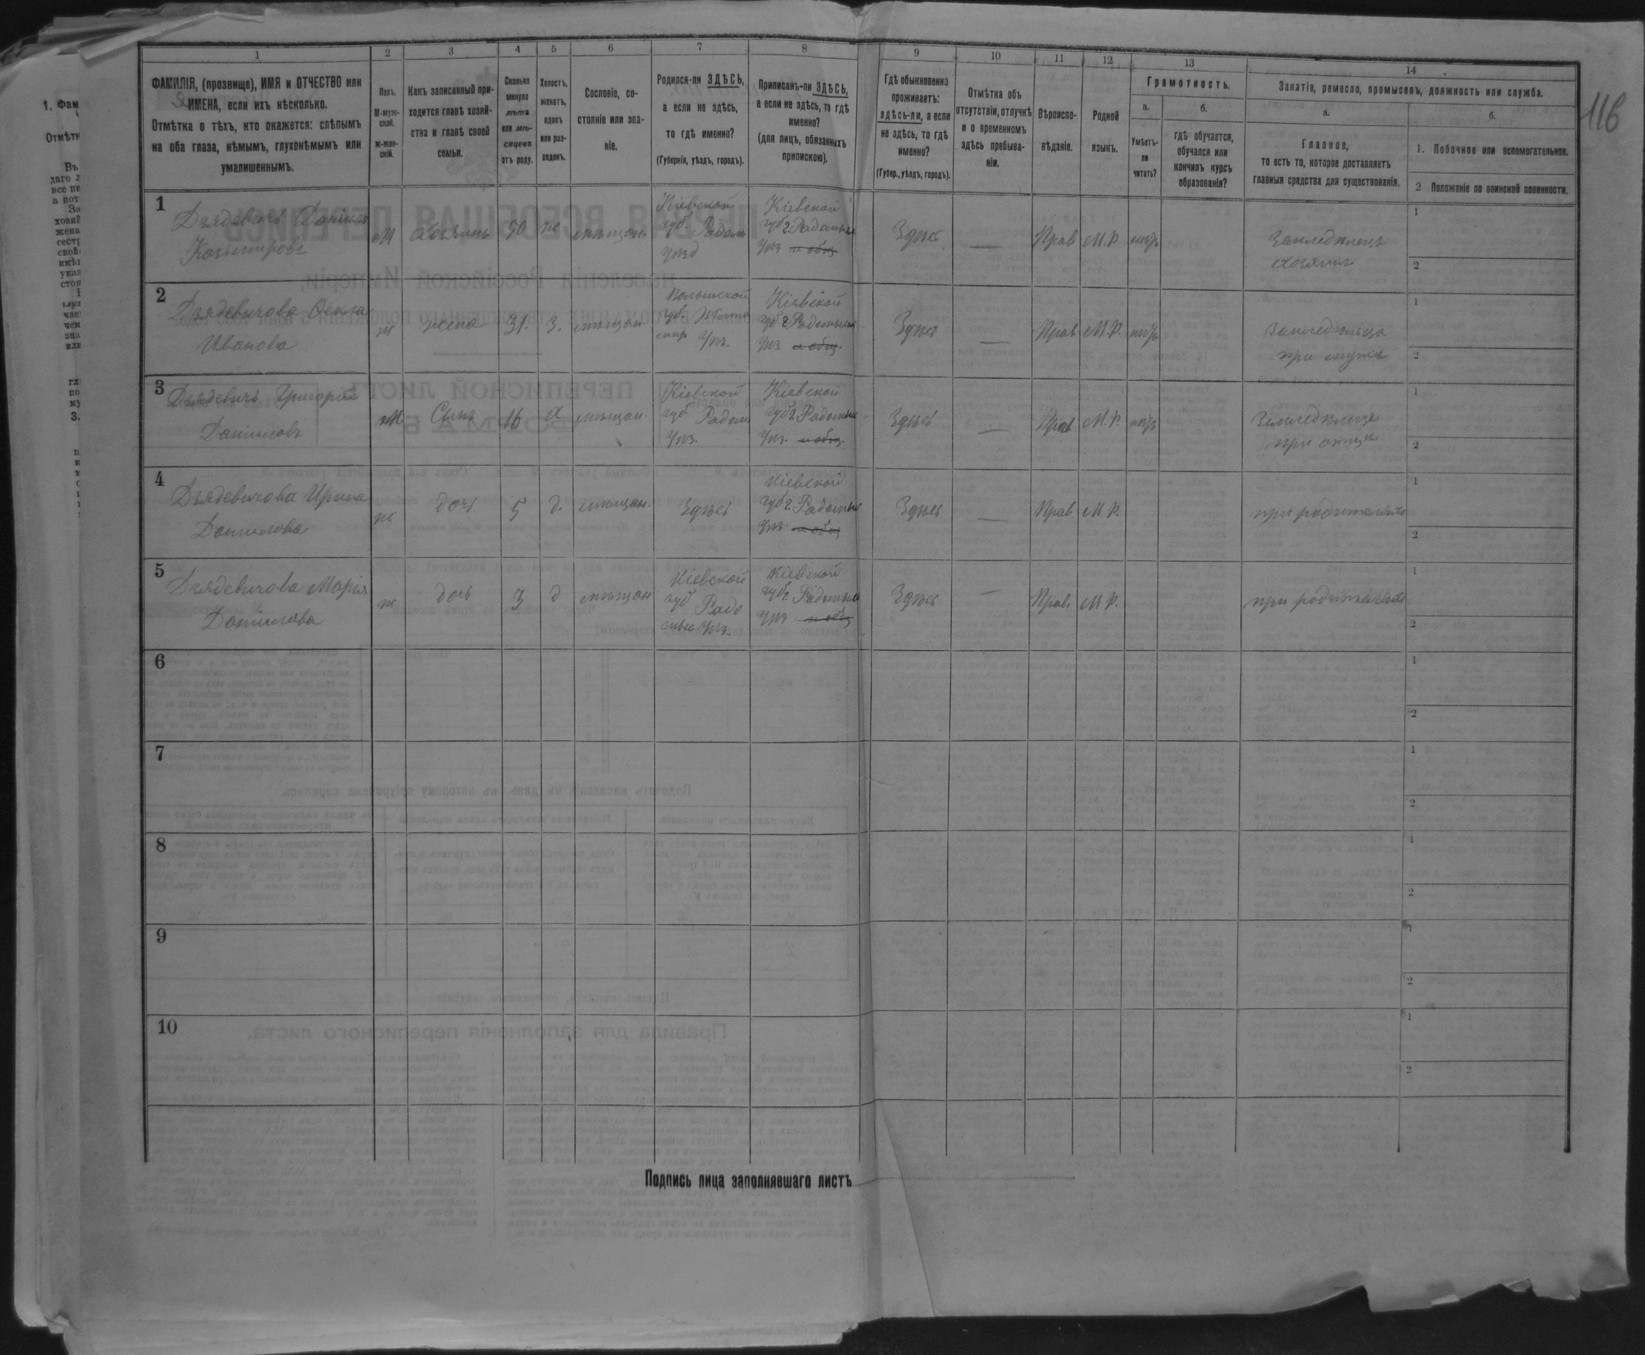 116
1 2 3 4 5 6 7 8 9 10 11 12 13 14
ФАМИЛІЯ, (прозвище), ИМЯ и ОТЧЕСТВО или
ИМЕНА, если ихъ нѣсколько.
Отмѣтка о тѣхъ, кто окажется: слѣпымъ
на оба глаза, нѣмымъ, глухонѣмымъ или
умалишеннымъ.
Полъ.
М-муж-
ской.
Ж-жен-
скій.
Какъ записанный при-
ходится главѣ хозяй-
ства и главѣ своей
семьи.
Сколько
минуло
лѣтъ
или мѣ-
сяцевъ
отъ роду.
Холостъ,
женатъ,
вдовъ
или раз-
веденъ.
Сословіе, со-
стояніе или зва-
ніе.
Родился-ли ЗДѢСЬ,
а если не здѣсь,
то гдѣ именно?
(Губернія, уѣздъ, городъ).
Приписанъ-ли ЗДѢСЬ,
а если не здѣсь, то гдѣ
именно?
(для лицъ, обязанныхъ
припискою).
Гдѣ обыкновенно
проживаетъ:
здѣсь-ли, а если
не здѣсь, то гдѣ
именно?
(Губер., уѣздъ, городъ).
Отмѣтка объ
отсутствіи, отлучкѣ
и о временномъ
здѣсь пребыва-
ніи.
Вѣроиспо-
вѣданіе.
Родной
языкъ.
Грамотность.
а.
Умѣетъ-
ли
читать?
б.
гдѣ обучается,
обучался или
кончилъ курсъ
образованія?
Занятіе, ремесло, промыселъ, должность или служба.
а.
Главное,
то есть то, которое доставляетъ
главныя средства для существованія.
б.
1. Побочное или вспомогательное.
2 Положеніе по воинской повинности.
1
Дядевичъ Данило
М хозяинъ 50 же мѣщан
Кіевской
губ Радом
уѣзд
Кіевской
губ Радомысл
уѣз и общ
Здѣсь — Прав М.Р. негр
Земледѣлецъ
хозяинъ
1
2
2
Дядевичова Ѳекла
Иванова
ж жена 31. З. мѣщан
Волынской
губ. Жито
мир уѣз.
Кіевской
губ Радомысл
уѣз и общ.
Здѣсь — Прав М.Р. негр
Земледѣлица
при мужѣ
1
2
3
Дядевичъ Григорій
Даниловъ
М Сынъ 16 Х мѣщан
Кіевской
губ Радом
уѣз.
Кіевской
губ Радомысл
уѣз. и общ
Здѣсь — Прав М.Р. негр
Земледѣлецъ
при отцѣ
1
2
4
Дядевичова Ирина
Данилова
ж дочь 5 д. мѣщан.
Здѣсь
Кіевской
губ Радомысл
уѣз и общ
Здѣсь — Прав М.Р.
при родителяхъ
1
2
5
Дядевичова Марія
Данилова
ж дочь 3 д мѣщан
Кіевской
губ Радо
мысл уѣз.
Кіевской
губ. Радомысл
уѣз и общ
Здѣсь — Прав. М.Р.
при родителяхъ
1
2
6
1
2
7
1
2
8
1
2
9
1
2
10
1
2
Подпись лица заполнявшаго листъ